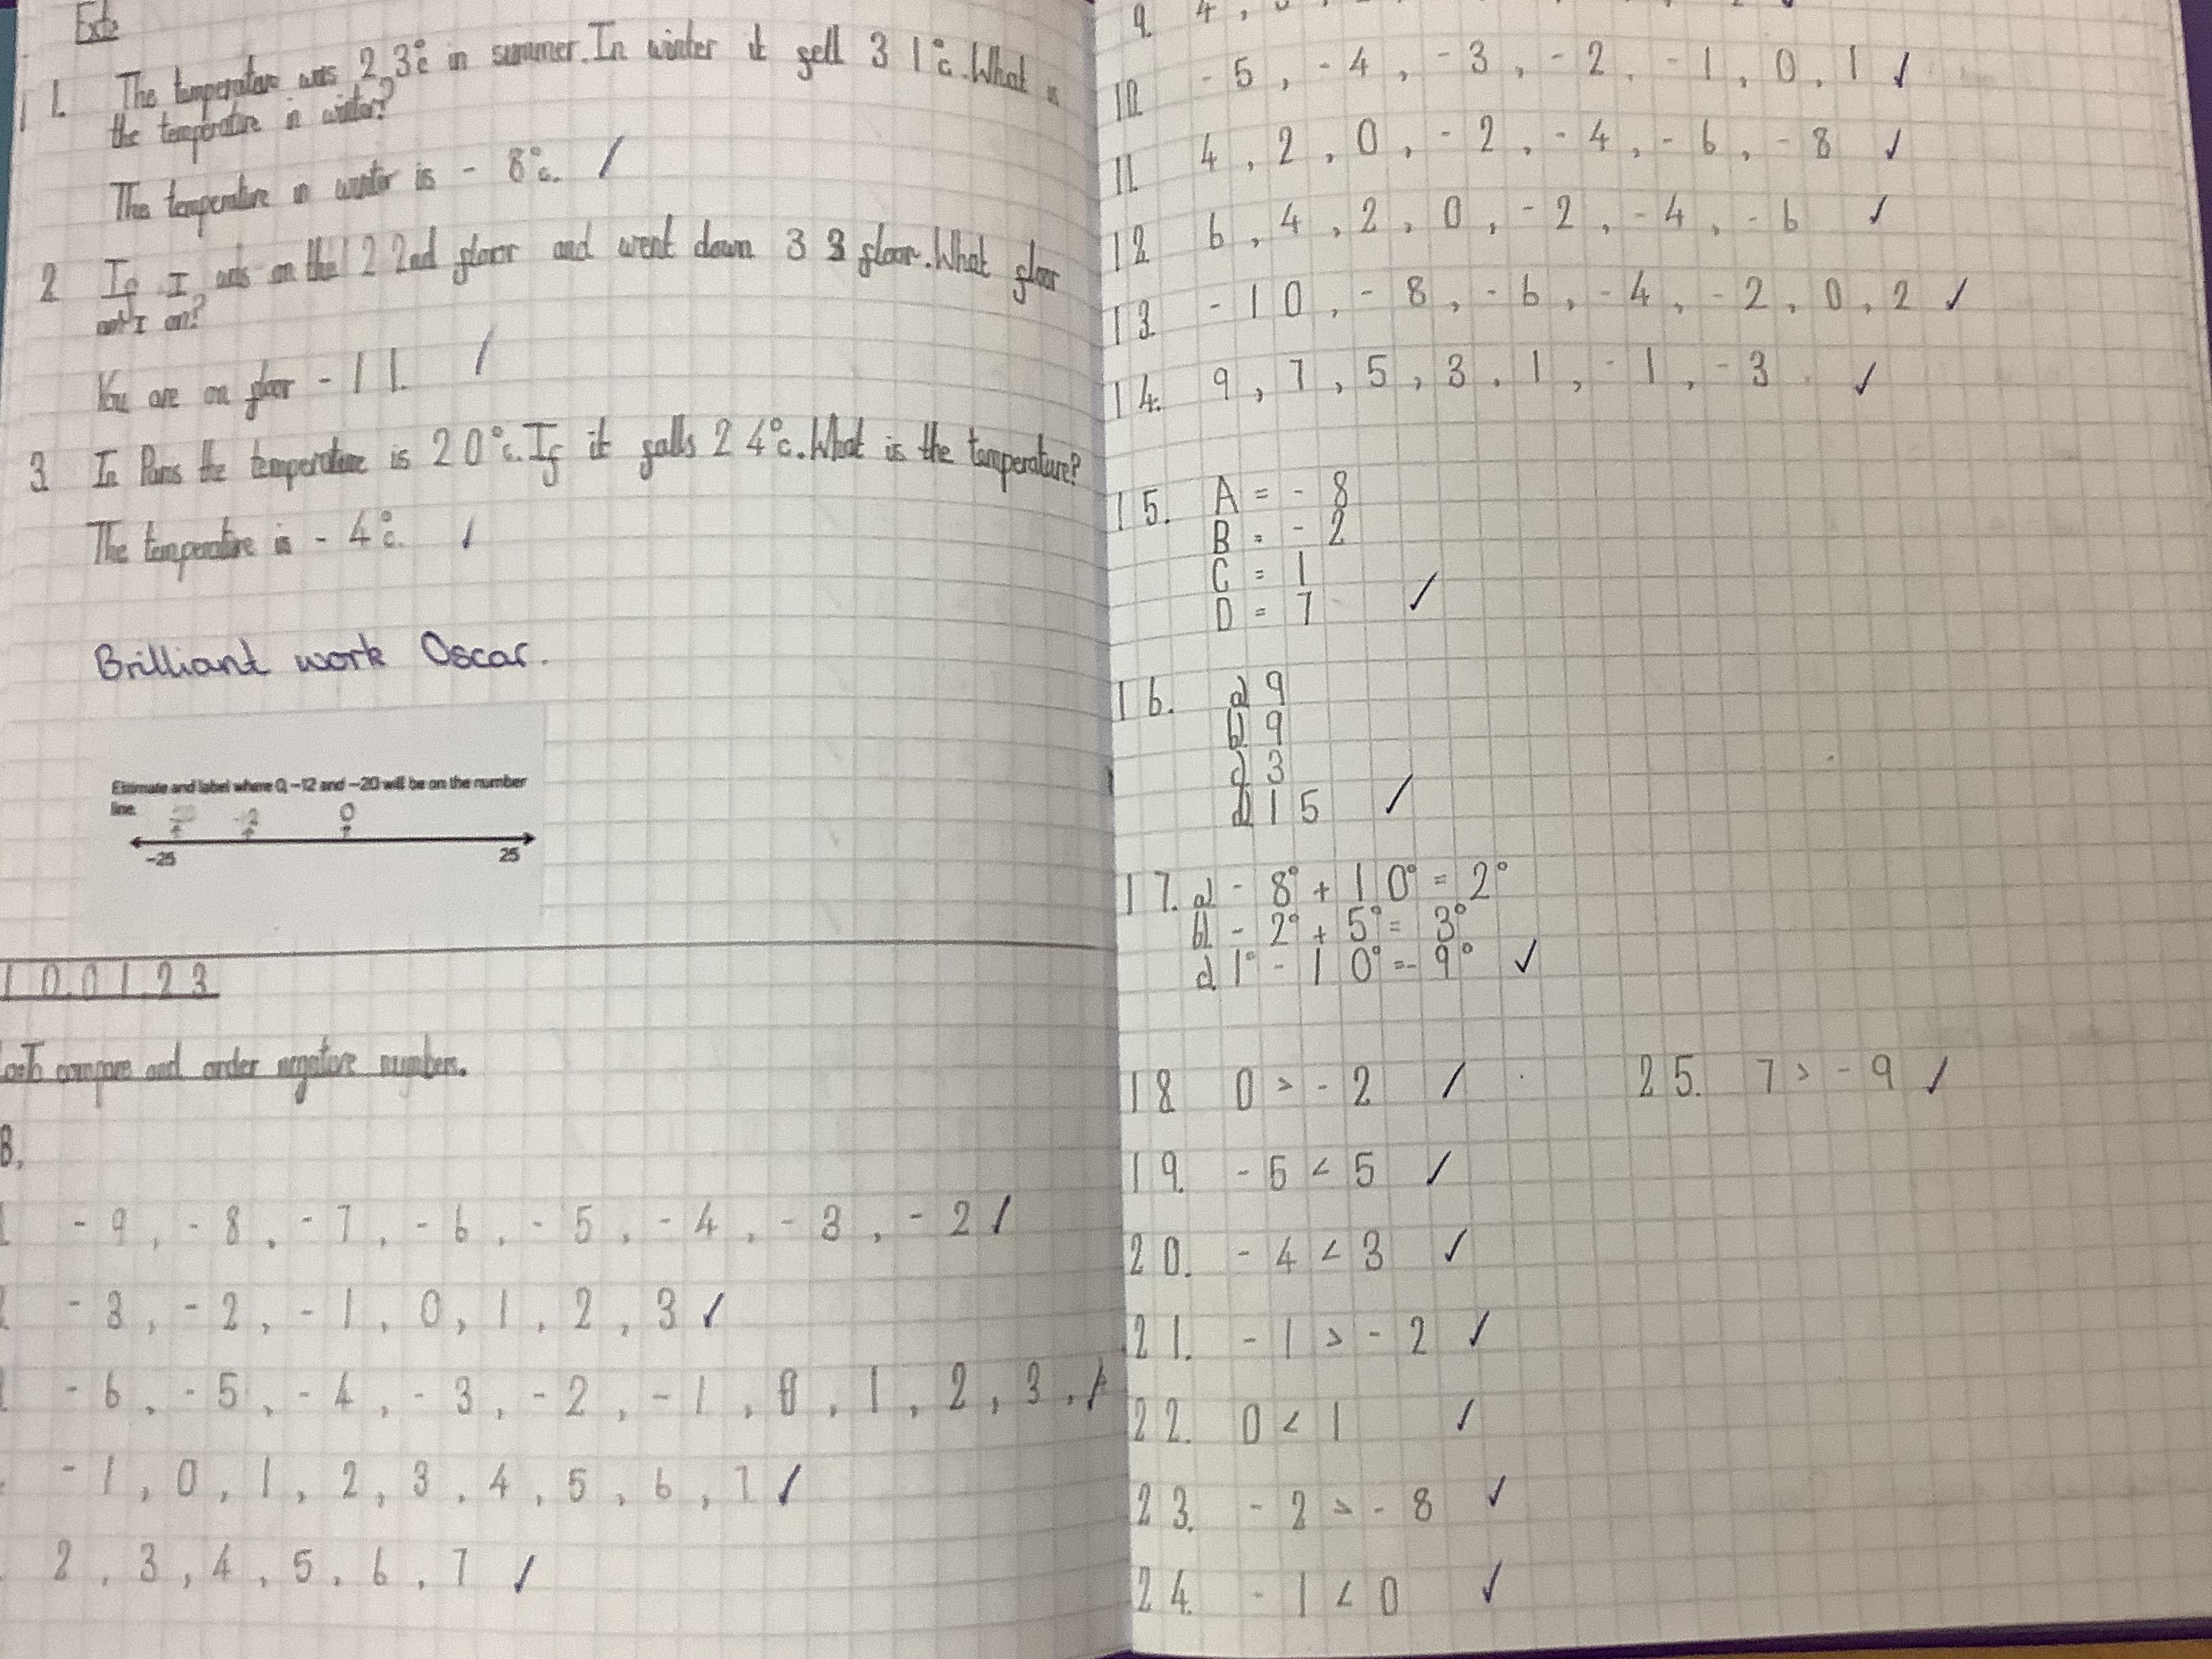 Ext:
1. The temperature was 23°c in summer. In winter it fell 31°c. What is
the temperature in winter?
The temperature in winter is -8°c.
2 If I was on the 22nd floor and went down 33 floor. What floor
am I on?
You are on floor -11.
3 In Paris the temperature is 20°c. If it falls 24°c. What is the temperature?
The temperature is -4°c.
Brilliant work Oscar.
Estimate and label where 0, -12 and -20 will be on the number
line.
0
-25 25
10.01.23
To compare and order negative numbers.
B.
-9, -8, -7, -6, -5, -4, -3, -2
-3, -2, -1, 0, 1, 2, 3
-6, -5, -4, -3, -2, -1, 0, 1, 2, 3.
-1, 0, 1, 2, 3, 4, 5, 6, 7
2, 3, 4, 5, 6, 7
9.
10. -5, -4, -3, -2, -1, 0, 1
11. 4, 2, 0, -2, -4, -6, -8
12 6, 4, 2, 0, -2, -4, -6
13. -10, -8, -6, -4, -2, 0, 2
14. 9, 7, 5, 3, 1, -1, -3
15. A = -8
B = -2
C = 1
D = 7
16. a) 9
b) 9
c) 3
d) 15
17. a) -8° + 10° = 2°
b) -2° + 5° = 3°
c) 1° - 10° = -9°
18 0 > -2
25. 7 > -9
19. -6 < 5
20. -4 < 3
21. -1 > -2
22. 0 < 1
23. -2 > -8
24. -1 < 0